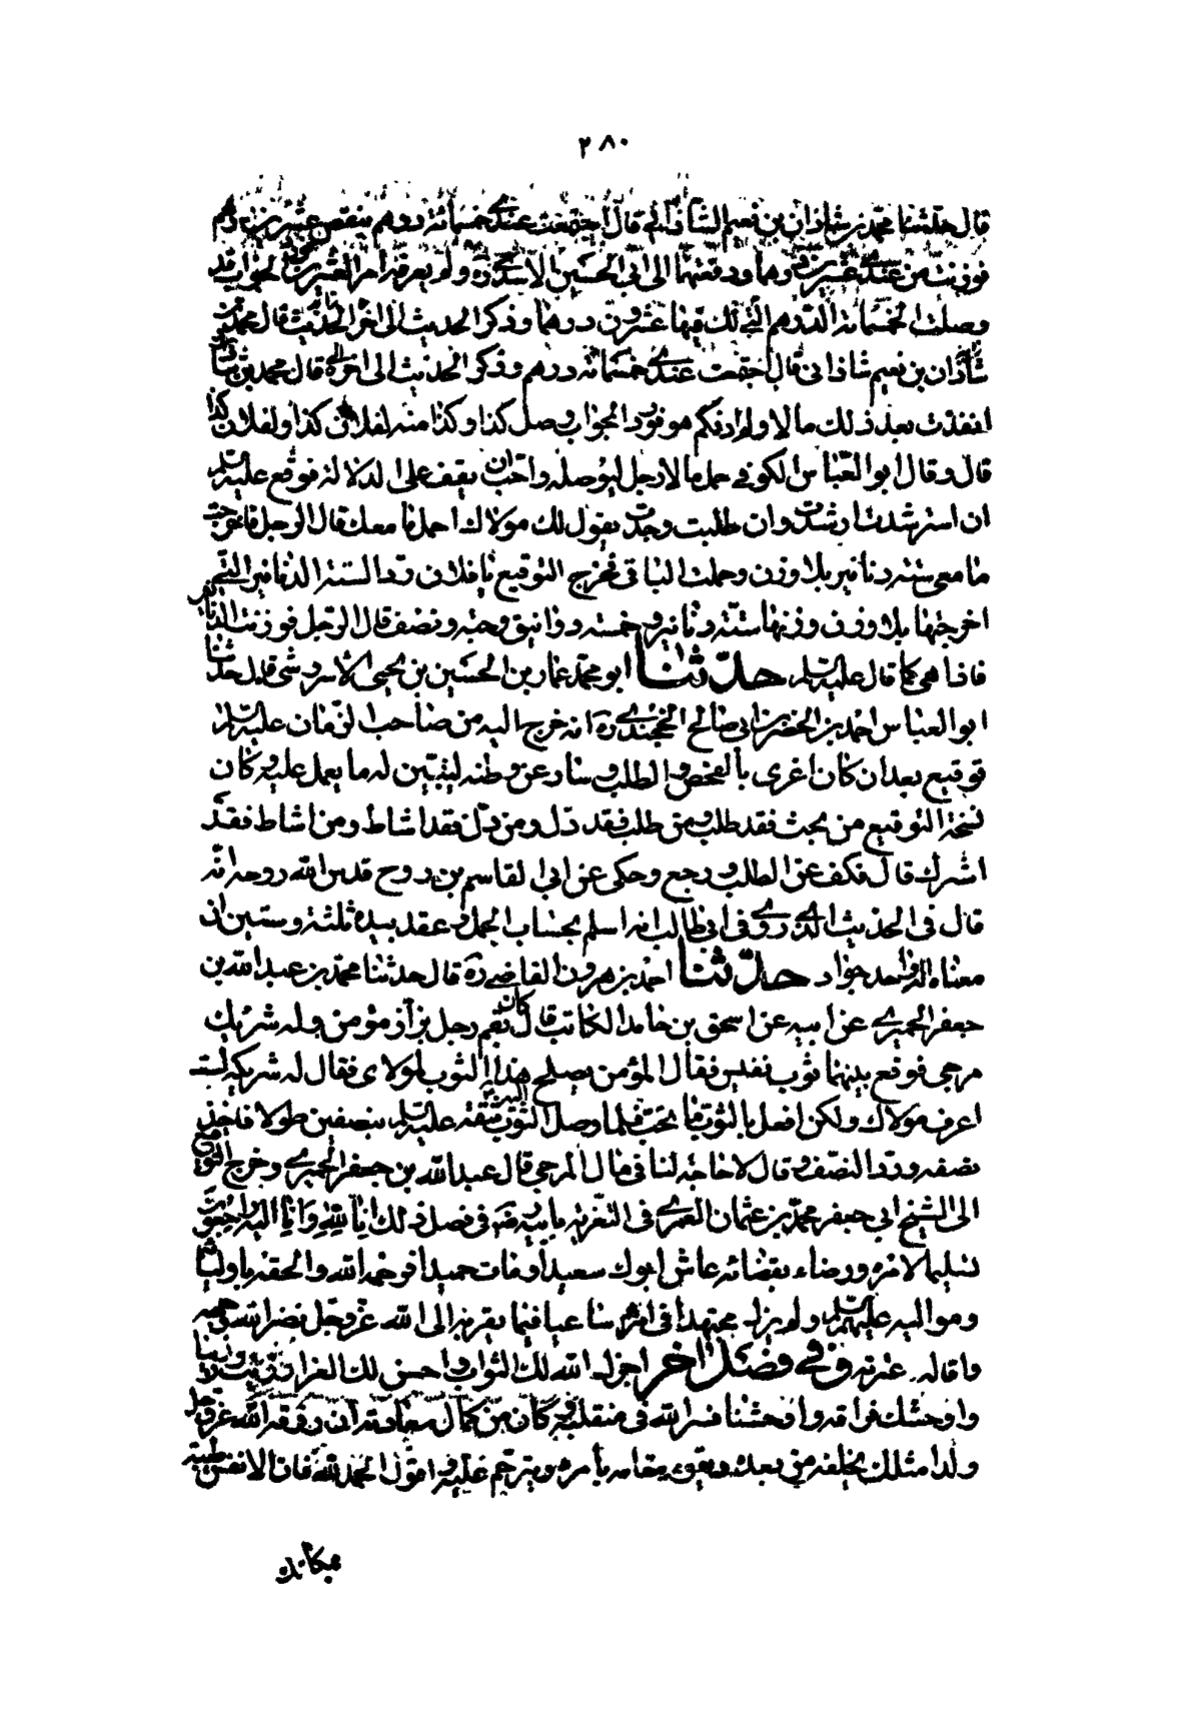 ٢٨٠
قال حدثنا محمد بن شاذان بن نعيم الشاذاني قال اجتمعت عندي خمسمائة درهم ينقص عشرين درهم
فوزنت من عندي عشرين درهما ودفعتهما الى ابي الحسين الاسدي ره ولم يعرفه امر العشرين فورد الجواب قد
وصلت الخمسمائة الدرهم التي لك فيها عشرون درهما وذكر الحديث الى اخر الحديث قال محمد بن
شاذان بن نعيم شاذانى قال اجتمعت عندي خمسمائة درهم وذكر الحديث الى اخره قال محمد بن شاذان
انفذت بعد ذلك مالا ولم اذكر لمن هو فورد الجواب وصل كذا وكذا منه لفلان كذا ولفلان كذا
قال وقال ابو العباس الكوفي حمل مالا رجل ليوصله واحب ان يقف على الدلالة فوقع عليه السلام
ان استرشدت ارشدت وان طلبت وجدت يقول لك مولاك احمل ما معك قال الرجل فاخرجت
ما معى ستة دنانير بلا وزن وحملت الباقى فخرج التوقيع يا فلان رد الستة الدنانير التي
اخرجتها بلا وزن وزنها ستة دنانير وخمسة دوانيق وحبة ونصف قال الرجل فوزنت الدنانير
فاذا هى كما قال عليه السلم حدّثنا ابو محمد عمار بن الحسين بن يحيى الاسروشى قال حدثنا
ابو العباس احمد بن الخضر بن ابى صالح الخجندي ره انه خرج اليه من صاحب الزمان عليه السلم
توقيع بعد ان كان اغرى بالفحص والطلب وسار عن وطنه ليتبين له ما يعمل عليه وكان
نسخة التوقيع من بحث فقد طلب ومن طلب فقد دل ومن دل فقد اشاط ومن اشاط فقد
اشرك قال فكف عن الطلب ورجع وحكى عن ابى القاسم بن روح قدس الله روحه انه
قال فى الحديث الذي روي فى ابى طالب انه اسلم بحساب الجمل وعقد بيده ثلثة وستين ان
معناه اله احد جواد حدّثنا احمد بن هرون القاضى ره قال حدثنا محمد بن عبد الله بن
جعفر الحميري عن ابيه عن اسحق بن حامد الكاتب قال كان بقم رجل بزاز مؤمن وله شريك
مرجى فوقع بينهما ثوب نفيس فقال المؤمن يصلح هذا الثوب لمولاى فقال له شريكه لست
اعرف مولاك ولكن افعل بالثوب ما تحب فلما وصل الثوب اليه شقه عليه السلم بنصفين طولا فاخذ
نصفه ورد النصف وقال لا حاجة لنا فى مال المرجى قال عبد الله بن جعفر الحميري وخرج التوقيع
الى الشيخ ابي جعفر محمد بن عثمان العمري فى التعزية بابيه رضه فى فصل ذلك انا لله وانا اليه راجعون
تسليما لامره ورضاء بقضائه عاش ابوك سعيدا ومات حميدا فرحمه الله والحقه باوليائه
ومواليه عليهم السلم ولم يزل مجتهدا فى امرهم ساعيا فيما يقربه الى الله عز وجل نضر الله وجهه
واقاله عثرته وفي فصل اخر اجزل الله لك الثواب واحسن لك العزاء رزيت ورزينا
واوحشك فراقه واوحشنا فسره الله فى منقلبه وكان من كمال سعادته ان رزقه الله عز وجل
ولدا مثلك يخلفه من بعده ويقوم مقامه بامره ويترحم عليه واقول الحمد لله فان الانفس طيبة
بمكانك